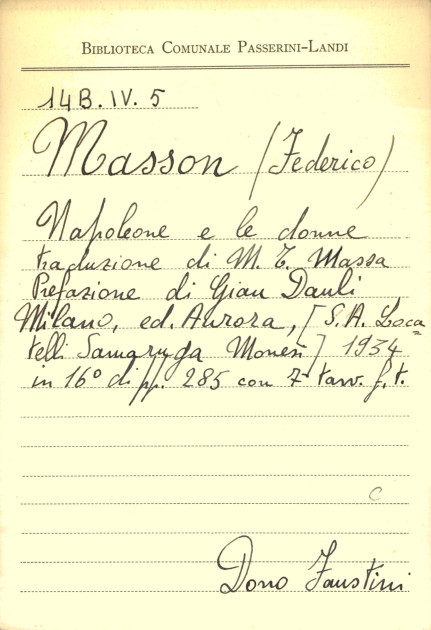 BIBLIOTECA COMUNALE PASSERINI-LANDI
14B. IV. 5
Masson (Federico)
Napoleone e le donne
traduzione di M. T. Massa
Prefazione di Gian Dauli
Milano, ed. Aurora, [S.A. Loca=
telli Samaruga Monesi] 1934
in 16° di pp. 285 con 7 tavv. f. t.
C
Dono Faustini